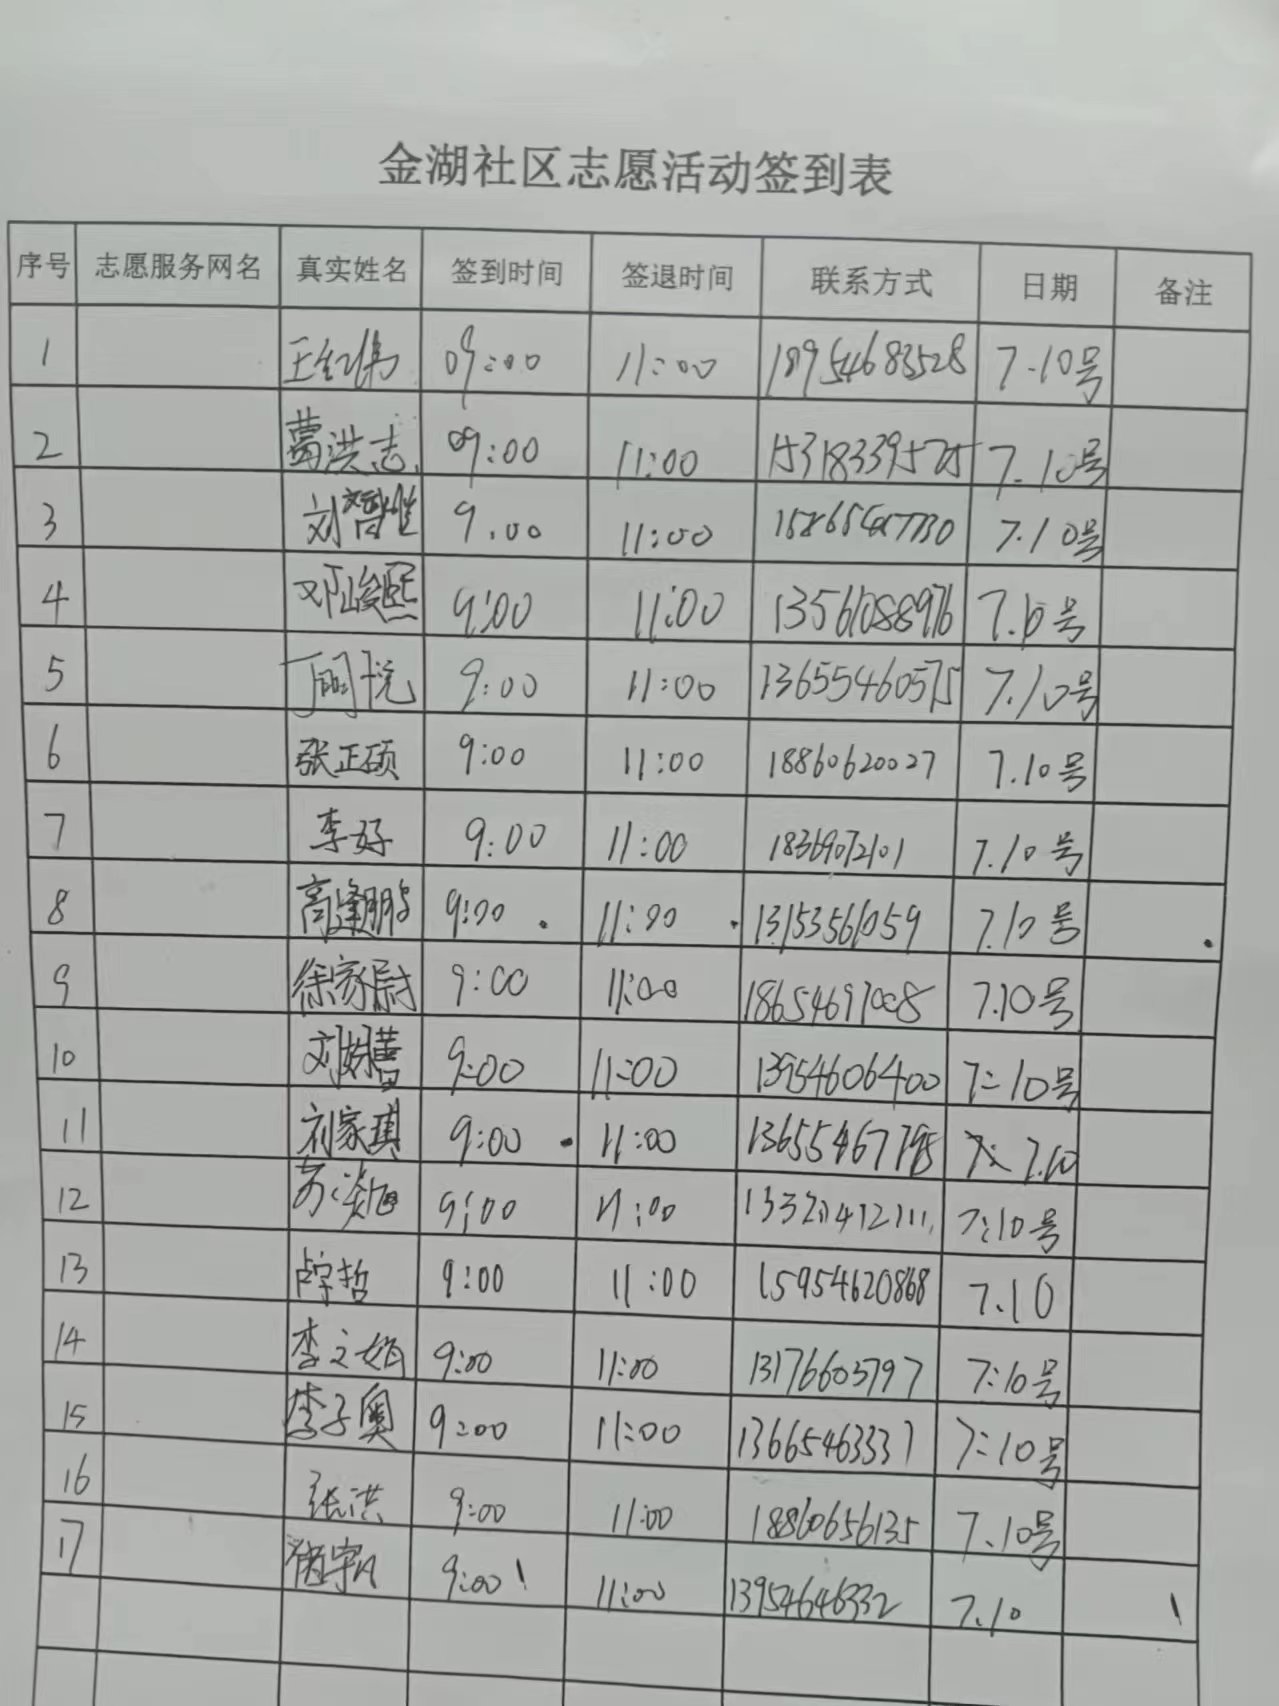 金湖社区志愿活动签到表
序号 志愿服务网名 真实姓名 签到时间 签退时间 联系方式 日期 备注
1 王红伟 09:00 11:00 18954683528 7.10号
2 葛洪志 09:00 11:00 15318339575 7.10号
3 刘智惟 9.00 11:00 7.10号
4 邓峻熙 9:00 11:00 13561088976 7.10号
5 9:00 11:00 13655460575 7.10号
6 张正硕 9:00 11:00 18860620027 7.10号
7 李好 9:00 11:00 18369072101 7.10号
8 高 9:00 11:00 13153561059 7.10号
9 徐家尉 9:00 11:00 18654697008 7.10号
10 刘 9:00 11:00 13954606400 7:10号
11 刘家琪 9:00 11:00 7.10
12 9:00 11:00 7:10号
13 9:00 11:00 15954620868 7.10
14 李之娟 9:00 11:00 13176605797 7:10号
15 李子奥 9:00 11:00 13665463337 7:10号
16 张洪 9:00 11:00 18860656135 7.10号
17 9:00 11:00 13954646332 7.10